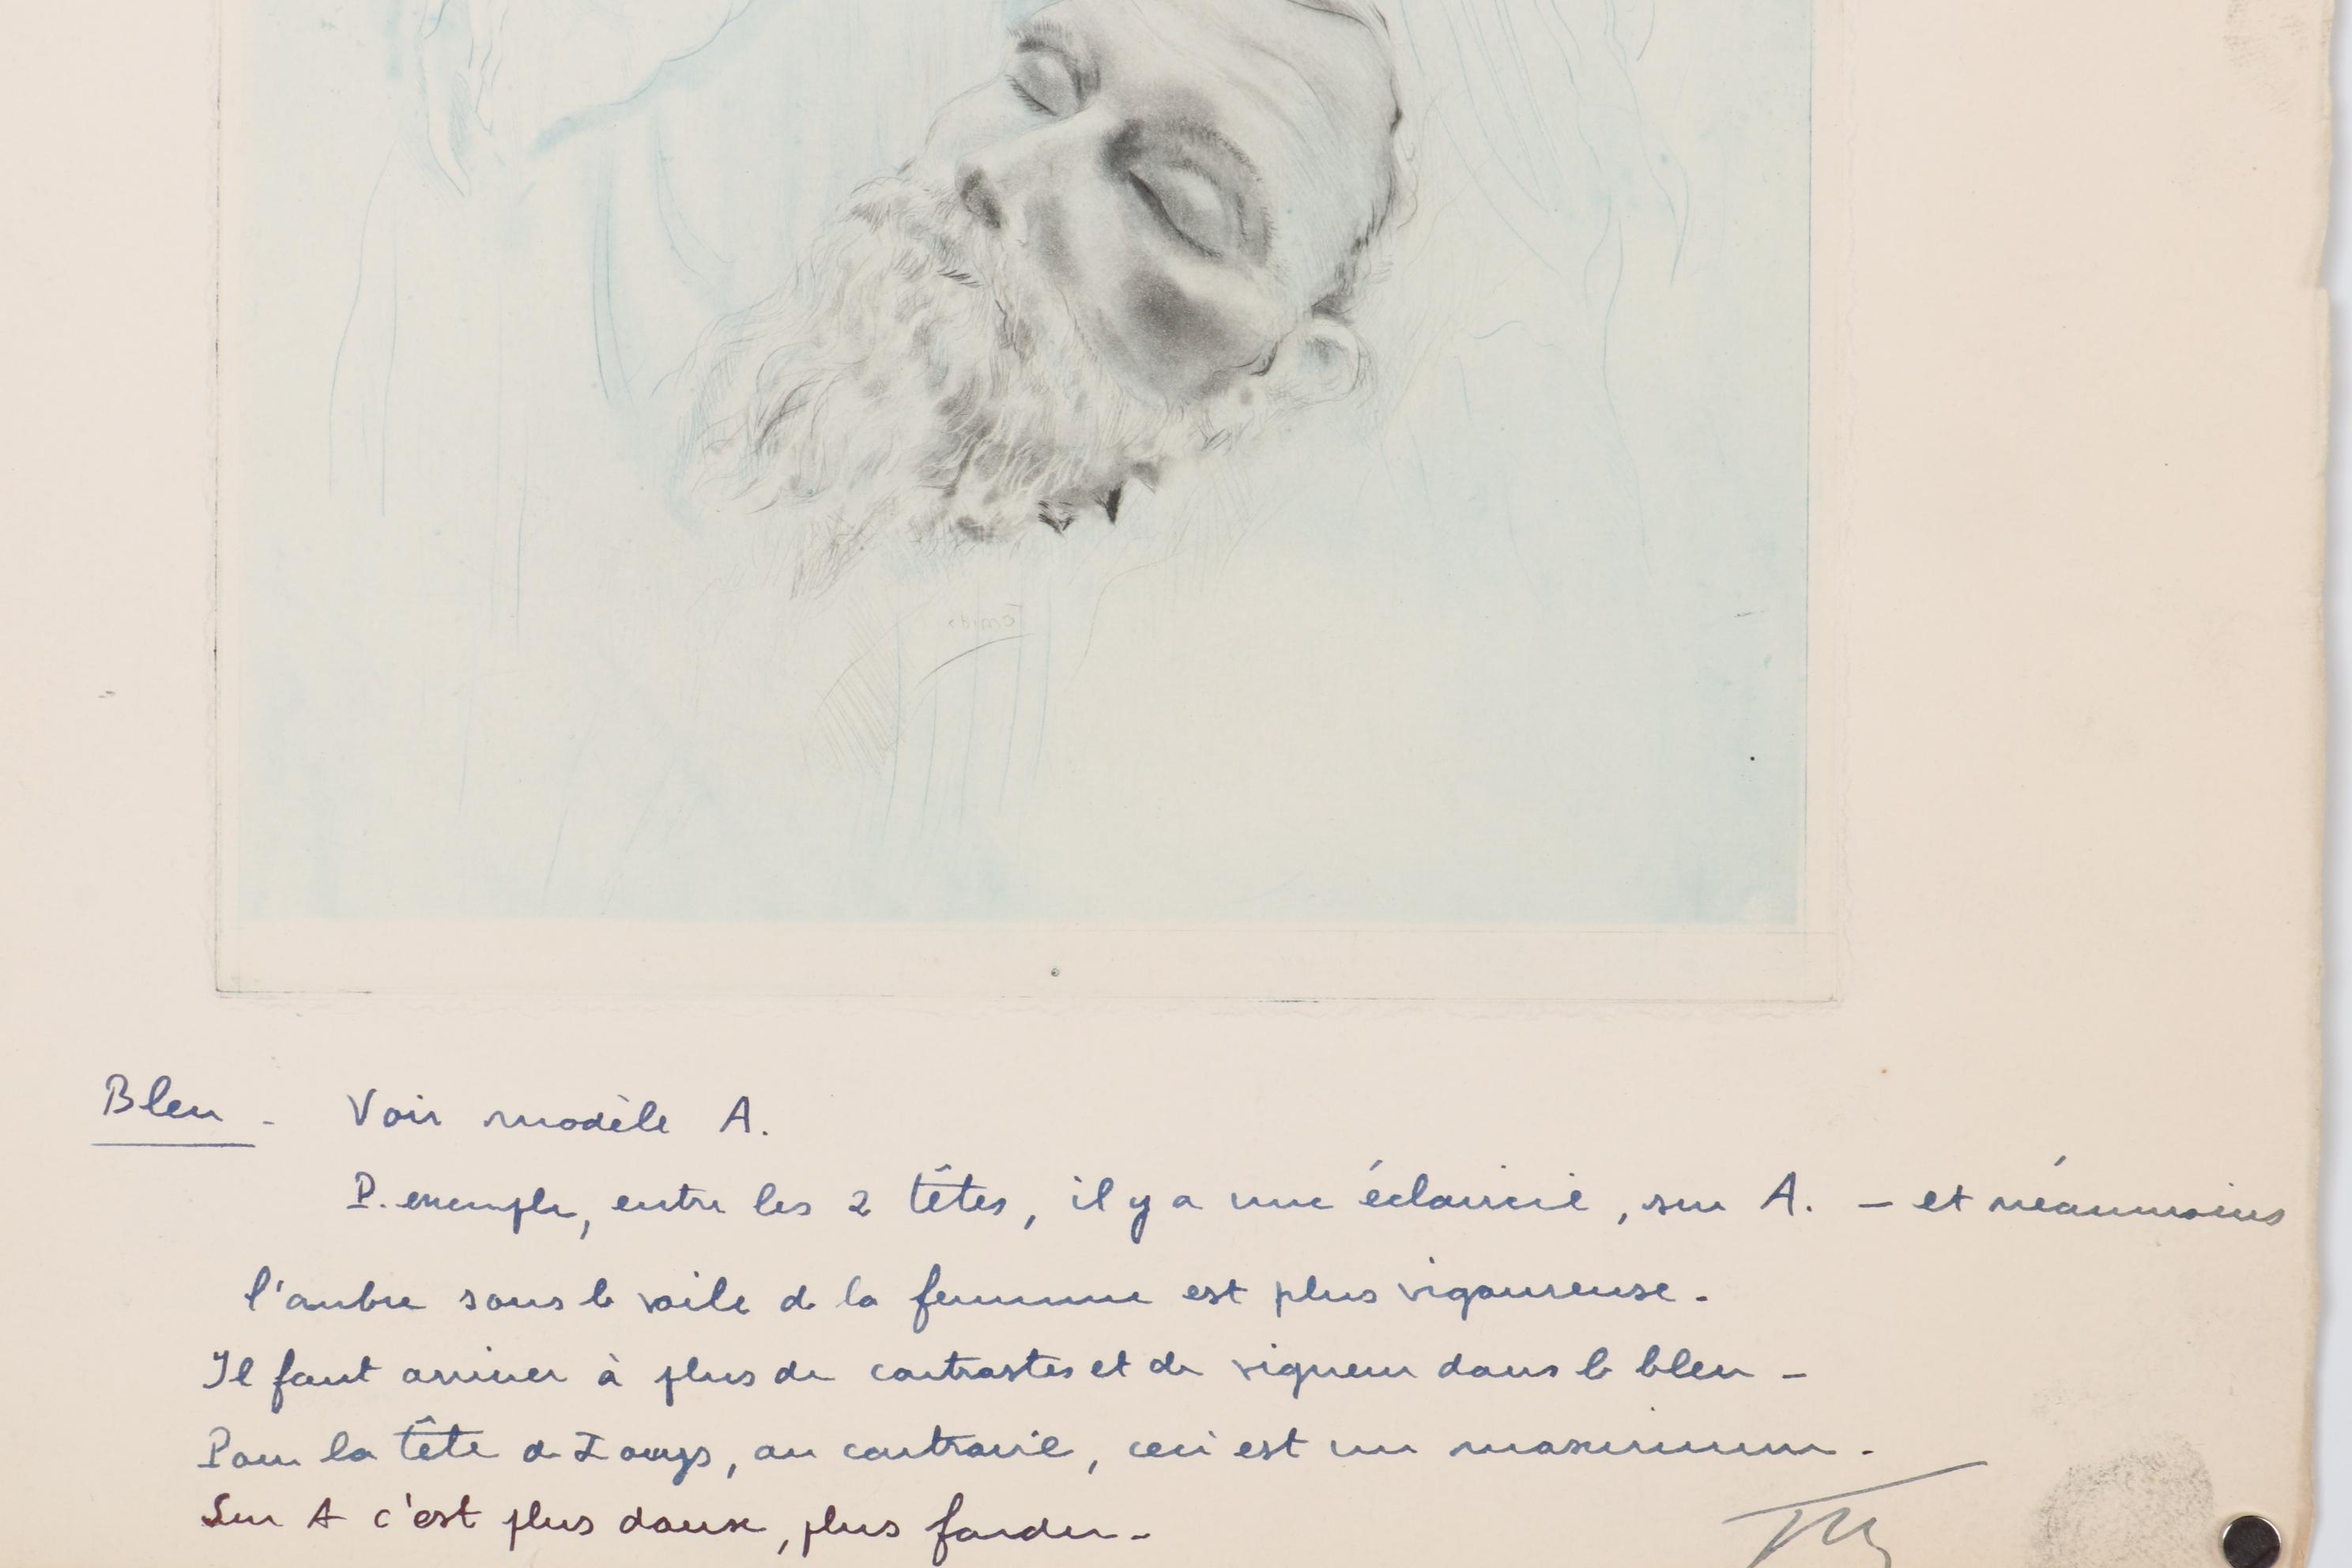 Bleu - Voir modèle A.
P. exemple, entre les 2 têtes, il y a une éclaircie, sur A. - et néanmoins
l'ombre sous le voile de la femme est plus vigoureuse.
Il faut arriver à plus de contrastes et de vigueur dans le bleu -
Pour la tête de, au contraire, ceci est un maximum.
Sur A c'est plus doux, plus fondu -